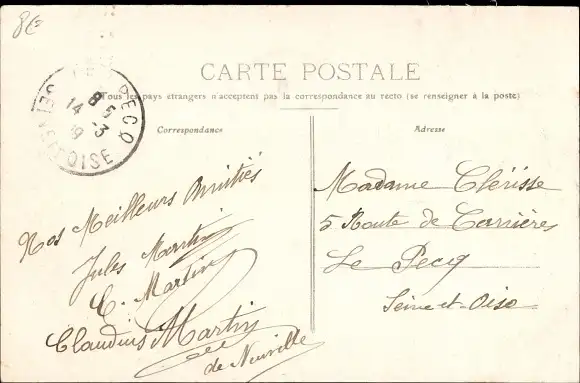 8€
CARTE POSTALE
Tous les pays étrangers n'acceptent pas la correspondance au recto (se renseigner à la poste)
Correspondance
Adresse
LE PECQ
SEINE-ET-OISE
Nos Meilleurs Amitiés
Jules Martin
C. Martin
Claudius Martin
de Neuville
Madame Clérisse
5 Route de Carrières
Le Pecq
Seine-et-Oise